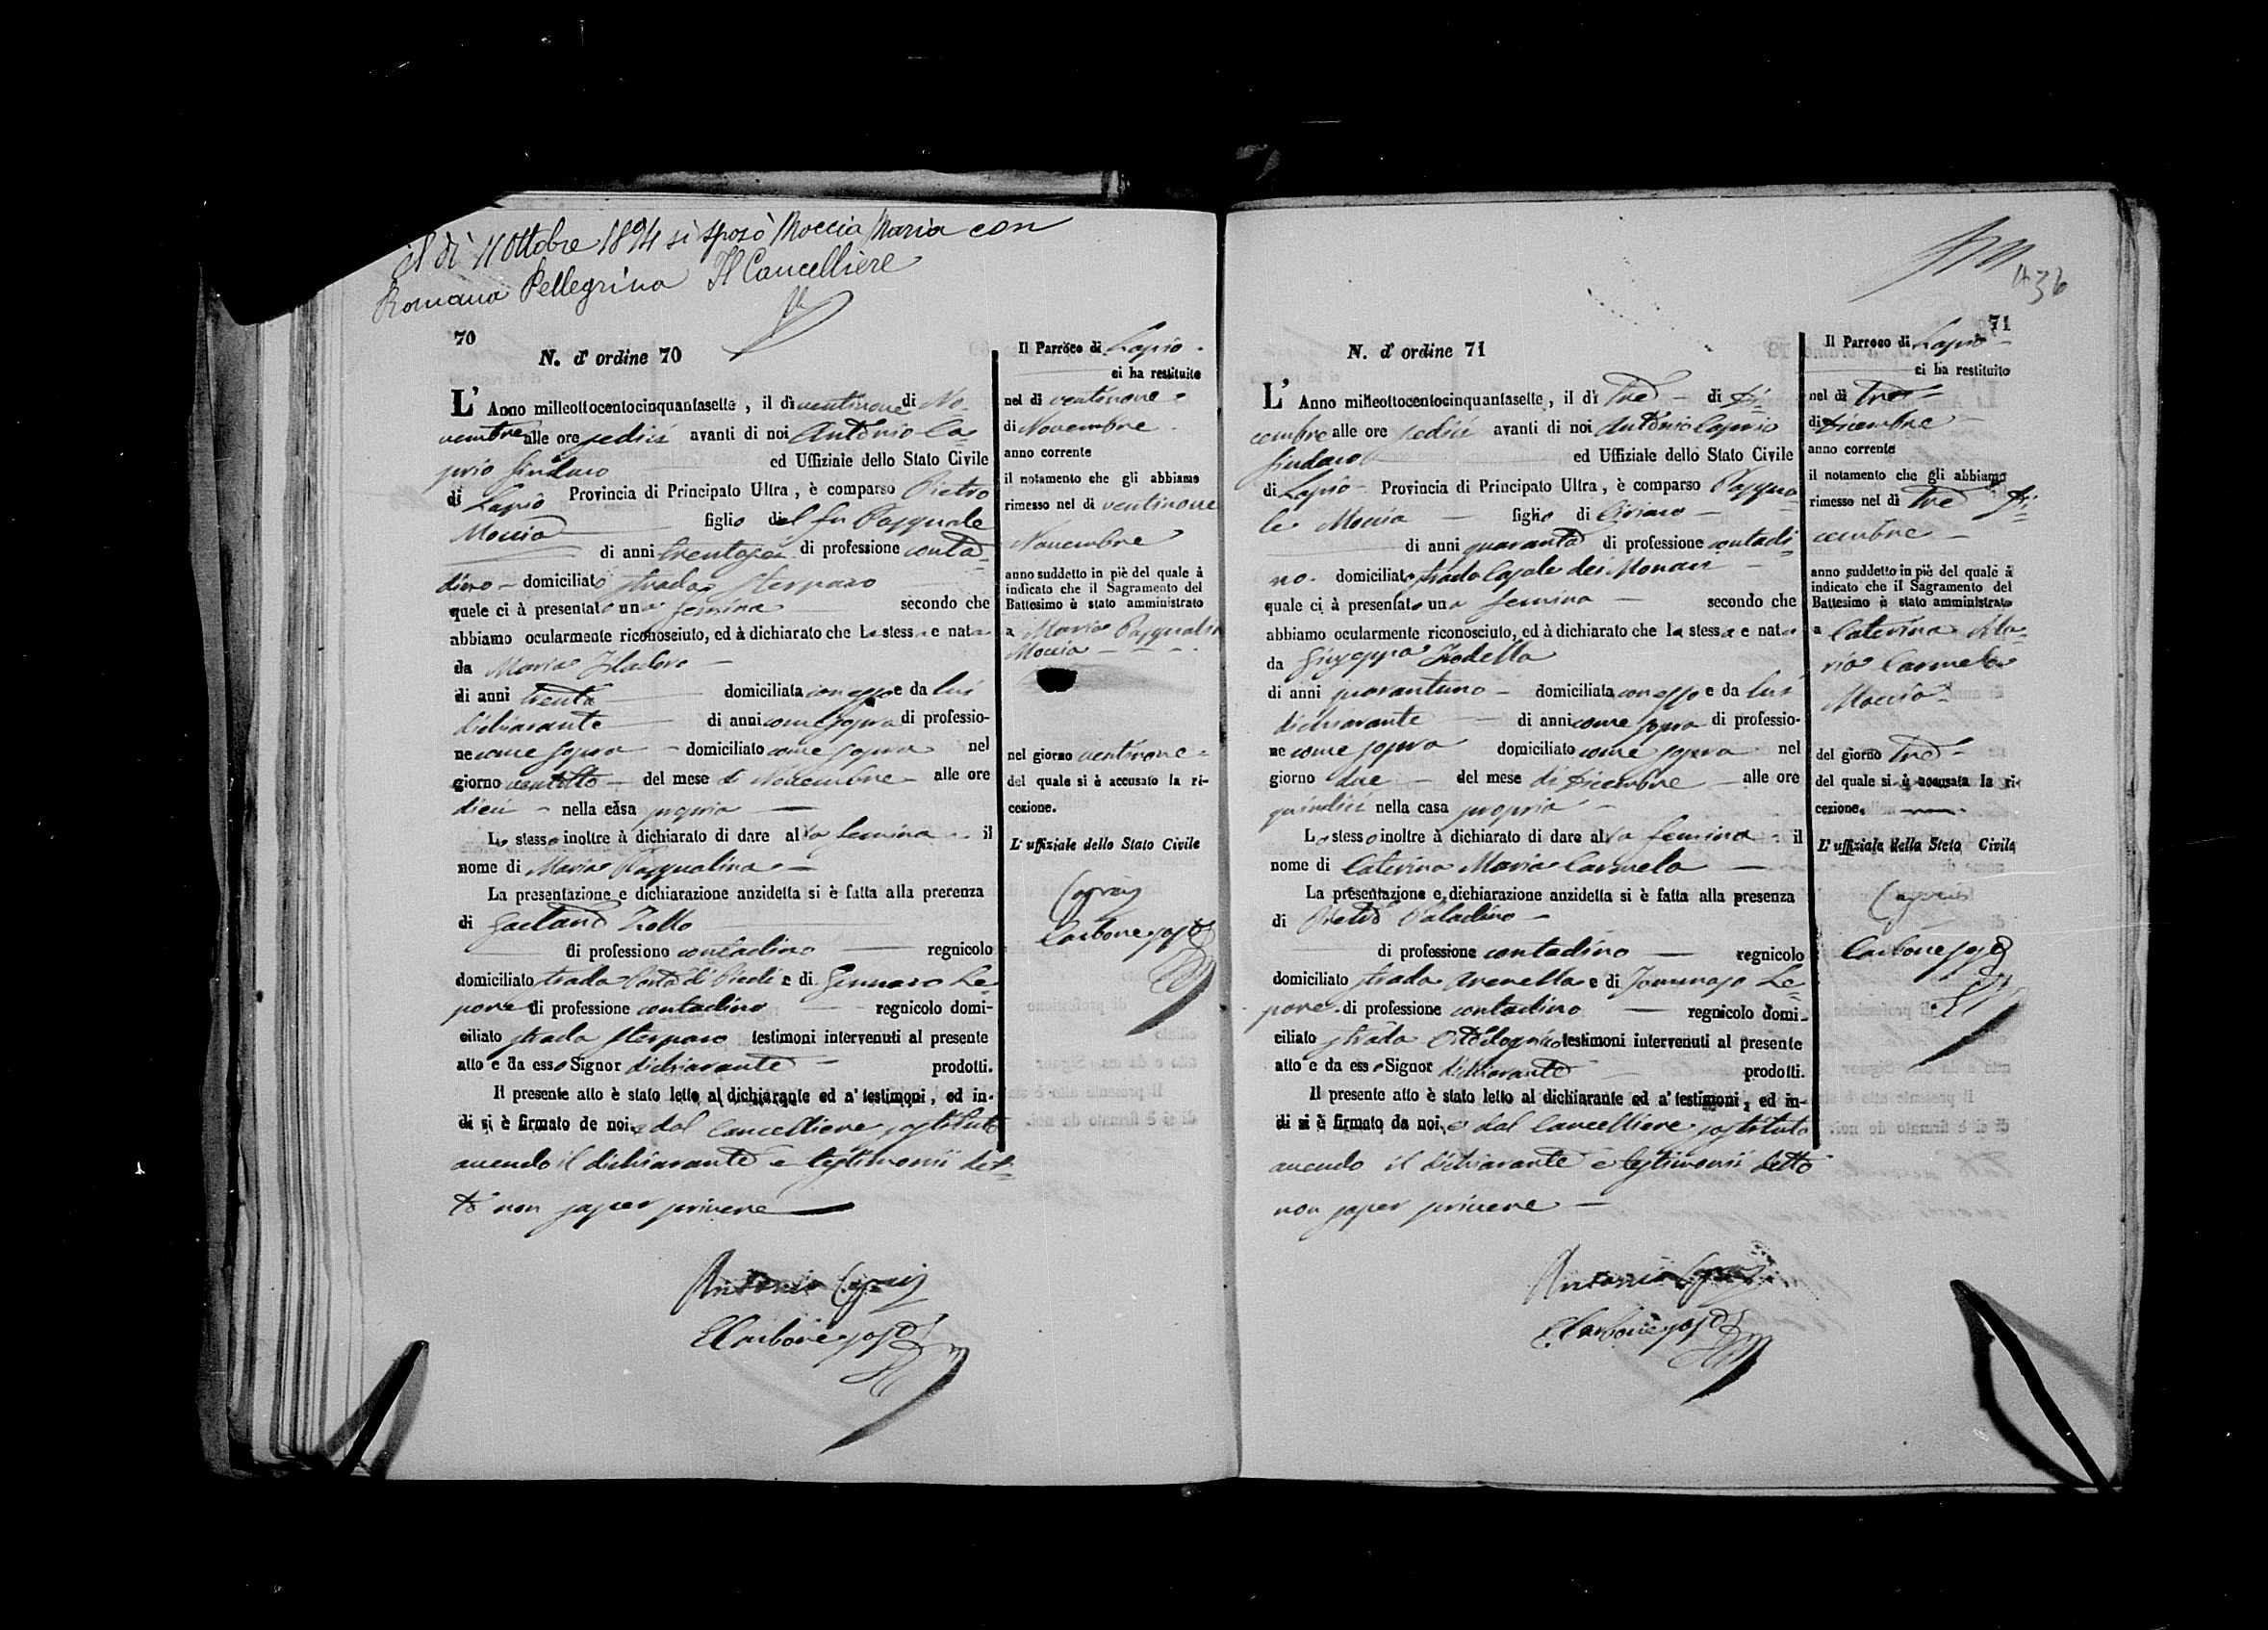 il dì 11 Ottobre 1894 si sposò Moccia Maria con
Romano Pellegrino Il Cancelliere
70
N. d' ordine 70
L' Anno milleottocentocinquantasette, il dì ventinove di No=
vembre alle ore sedici avanti di noi Antonio Ca=
prio Sindaco ed Uffiziale dello Stato Civile
di Lapio Provincia di Principato Ultra, è comparso Pietro
Moccia figlio del fu Pasquale
di anni trentasei di professione conta=
dino domiciliato strada Sterparo
quele ci à presentato una femina secondo che
abbiamo ocularmente riconosciuto, ed à dichiarato che la stessa e nata
da Maria
di anni trenta domiciliata con esso e da lui
dichiarante di anni come sopra di professio-
ne come sopra domiciliato come sopra nel
giorno ventotto del mese di Novembre alle ore
dieci nella casa propria
Lo stesso inoltre à dichiarato di dare alla femina il
nome di Maria Pasqualina
La presentazione e dichiarazione anzidetta si è fatta alla prerenza
di Gaetano Zollo
di professiono contadino regnicolo
domiciliato strada Porta di Piedi e di Gennaro Le=
pore di professione contadino regnicolo domi-
ciliato strada Sterparo testimoni intervenuti al presente
atto e da esso Signor dichiarante prodotti.
Il presente atto è stato letto al dichiarante ed a' testimoni, ed in-
di si è firmato de noi e dal Cancelliere sostituto
avendo il dichiarante e testimonii det=
to non saper scrivere
Antonio Caprio
E Carbone sosto
Il Parroco di Lapio
ci ha restituito
nel dì ventinove
di Novembre
anno corrente
il notamento che gli abbiamo
rimesso nel di ventinove
Novembre
anno suddetto in piè del quale à
indicato che il Sagramento del
Battesimo è stato amministrato
a Maria Pasqualina
Moccia
nel giorno ventinove
del quale si è accusato la ri-
cezione.
L' uffiziale dello Stato Civile
Caprio
Carbone sosto
36
71
N. d' ordine 71
L' Anno milleottocentocinquantasette, il dì tre di Di=
cembre alle ore sedici avanti di noi Antonio Caprio
Sindaco ed Uffiziale dello Stato Civile
di Lapio Provincia di Principato Ultra, è comparso Pasqua=
le Moccia figlio di Ciriaco
di anni quaranta di professione contadi=
no domiciliato strada Casale dei Monaci
quale ci à presentato una femina secondo che
abbiamo ocularmente riconosciuto, ed à dichiarato che la stessa e nata
da Giuseppa
di anni quarantuno domiciliata con esso e da lui
dichiarante di anni come sopra di professio-
ne come sopra domiciliato come sopra nel
giorno due del mese di Dicembre alle ore
quindici nella casa propria
Lo stesso inoltre à dichiarato di dare alla femina il
nome di Caterina Maria Carmela
La presentazione e dichiarazione anzidetta si è fatta alla presenza
di Pietro Paladino
di professione contadino regnicolo
domiciliato strada Arenella e di Tommaso Le=
pore di professione contadino regnicolo domi-
ciliato strada testimoni intervenuti al presente
atto e da esso Signor dichiarante prodotti.
Il presente atto è stato letto al dichiarante ed a' testimoni, ed in-
di si è firmato da noi e dal Cancelliere sostituto
avendo il dichiarante e testimonii detto
non saper scrivere
Antonio Caprio
E Carbone sosto
Il Parroco di Lapio
ci ha restituito
nel dì tre
di Dicembre
anno corrente
il notamento che gli abbiamo
rimesso nel di tre Di=
cembre
anno suddetto in piè del quale à
indicato che il Sagramento del
Battesimo è stato amministrato
a Caterina Ma=
ria Carmela
Moccia
del giorno tre
del quale si è accusata la ri-
cezione.
L' uffiziale della Stato Civile
Caprio
Carbone sosto